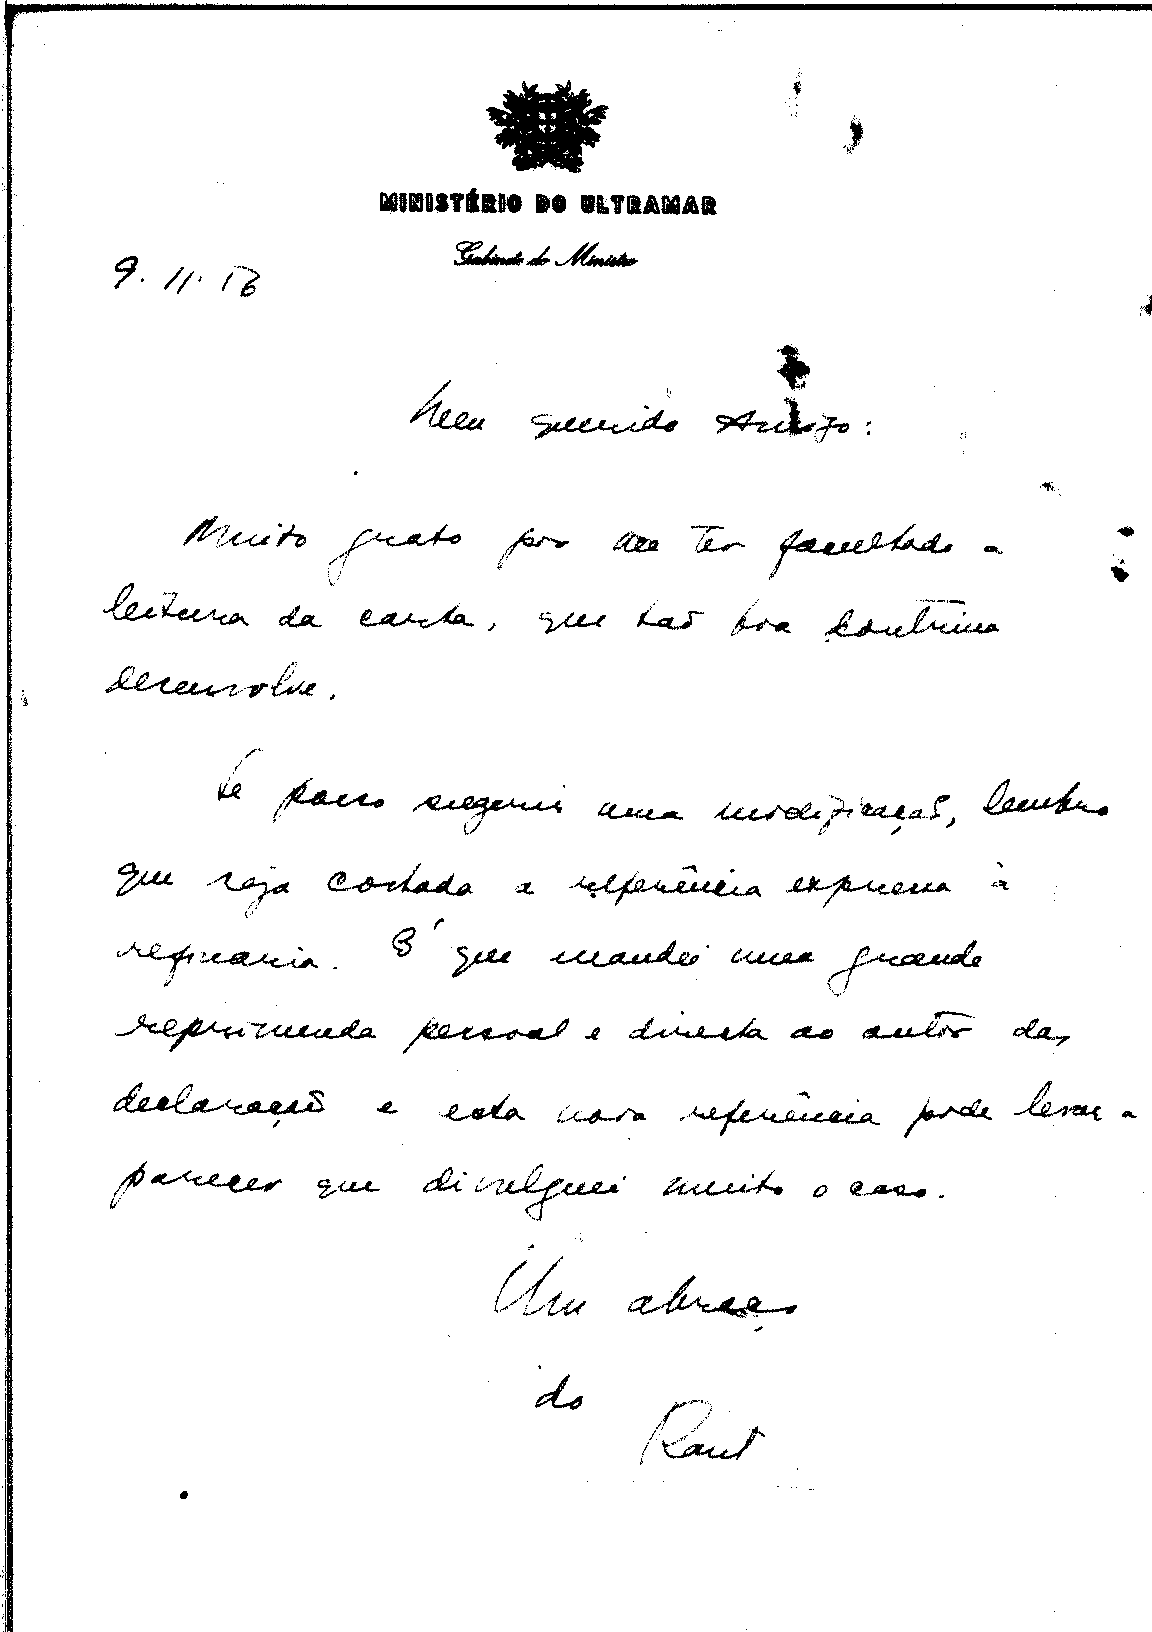 MINISTÉRIO DO ULTRAMAR
Gabinete do Ministro
9.11.56
Meu querido Amigo:
Muito grato por me ter facultado a
leitura da carta, que tão boa doutrina
desenvolve.
Se posso sugerir uma modificação, lembro
que seja cortada a referência expressa à
refinaria. É que mandei uma grande
reprimenda pessoal e directa ao autor das
declarações e esta nova referência pode levar a
parecer que divulguei muito o caso.
Um abraço
do
Raul